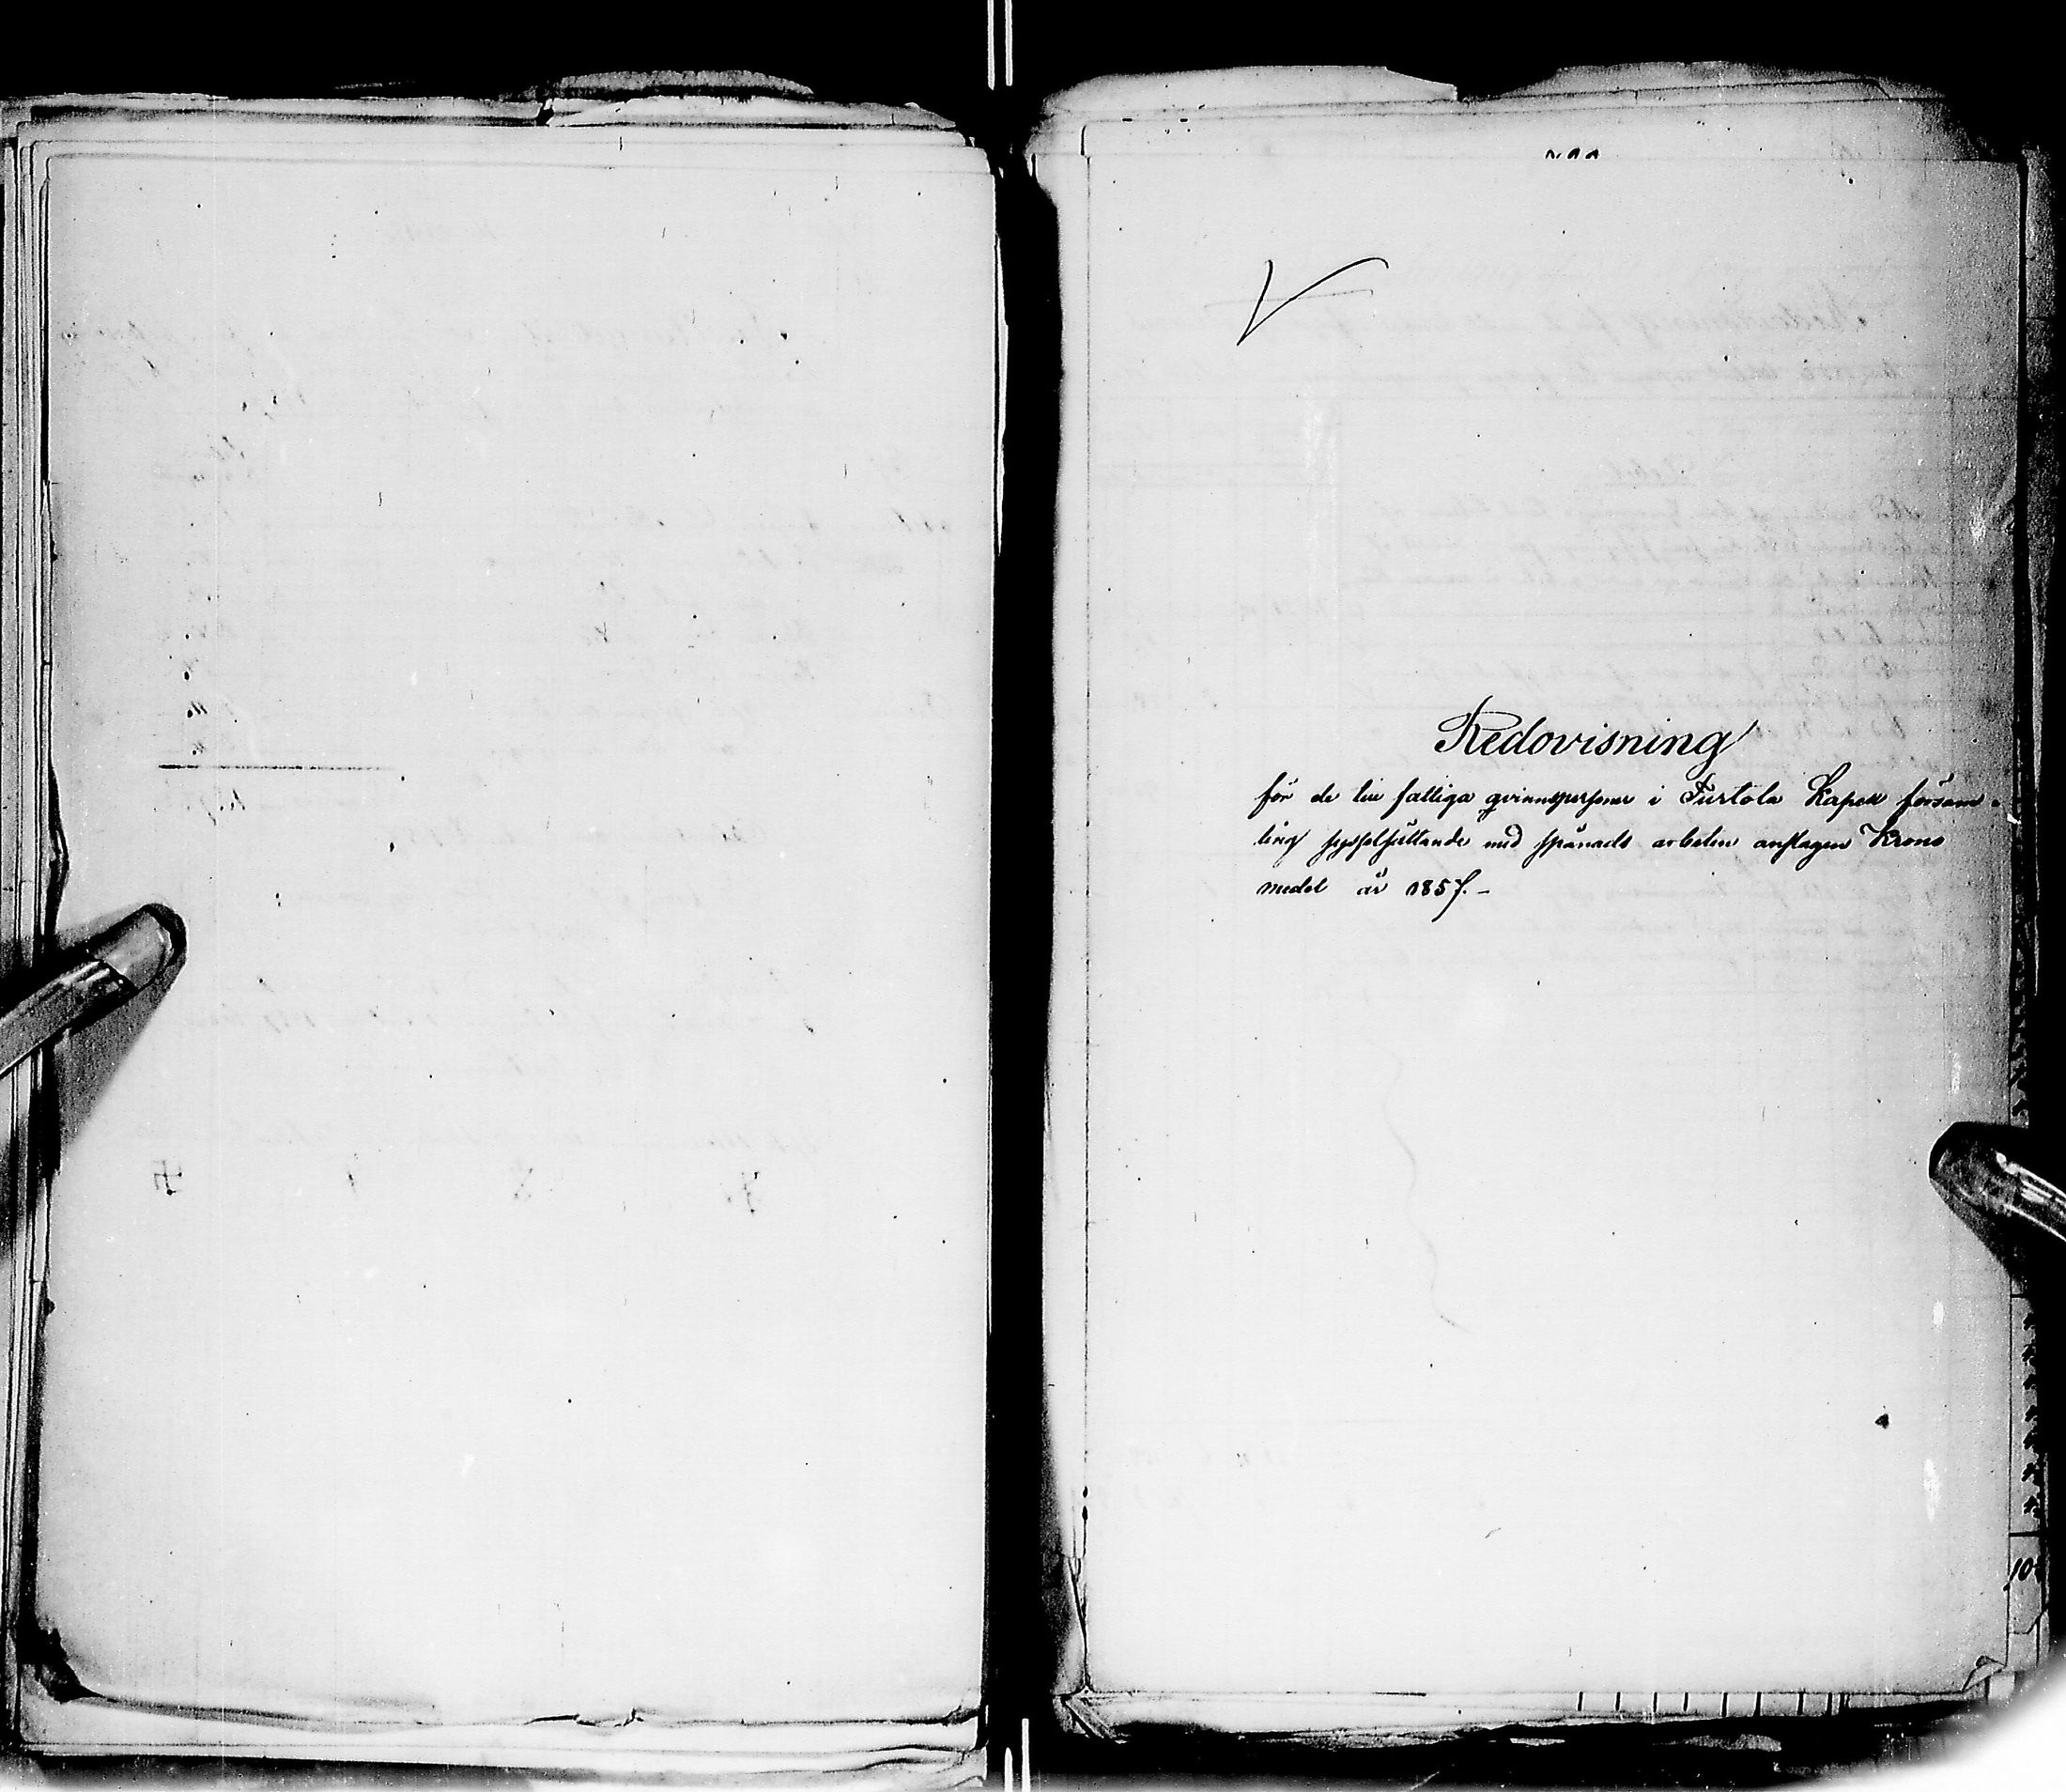 Redovisning
för de till fattiga qvinnspersoner i Turtola Kapell försams
ling sysselsättande med spånads arbeten anslagen Krono
medel år 1857.-